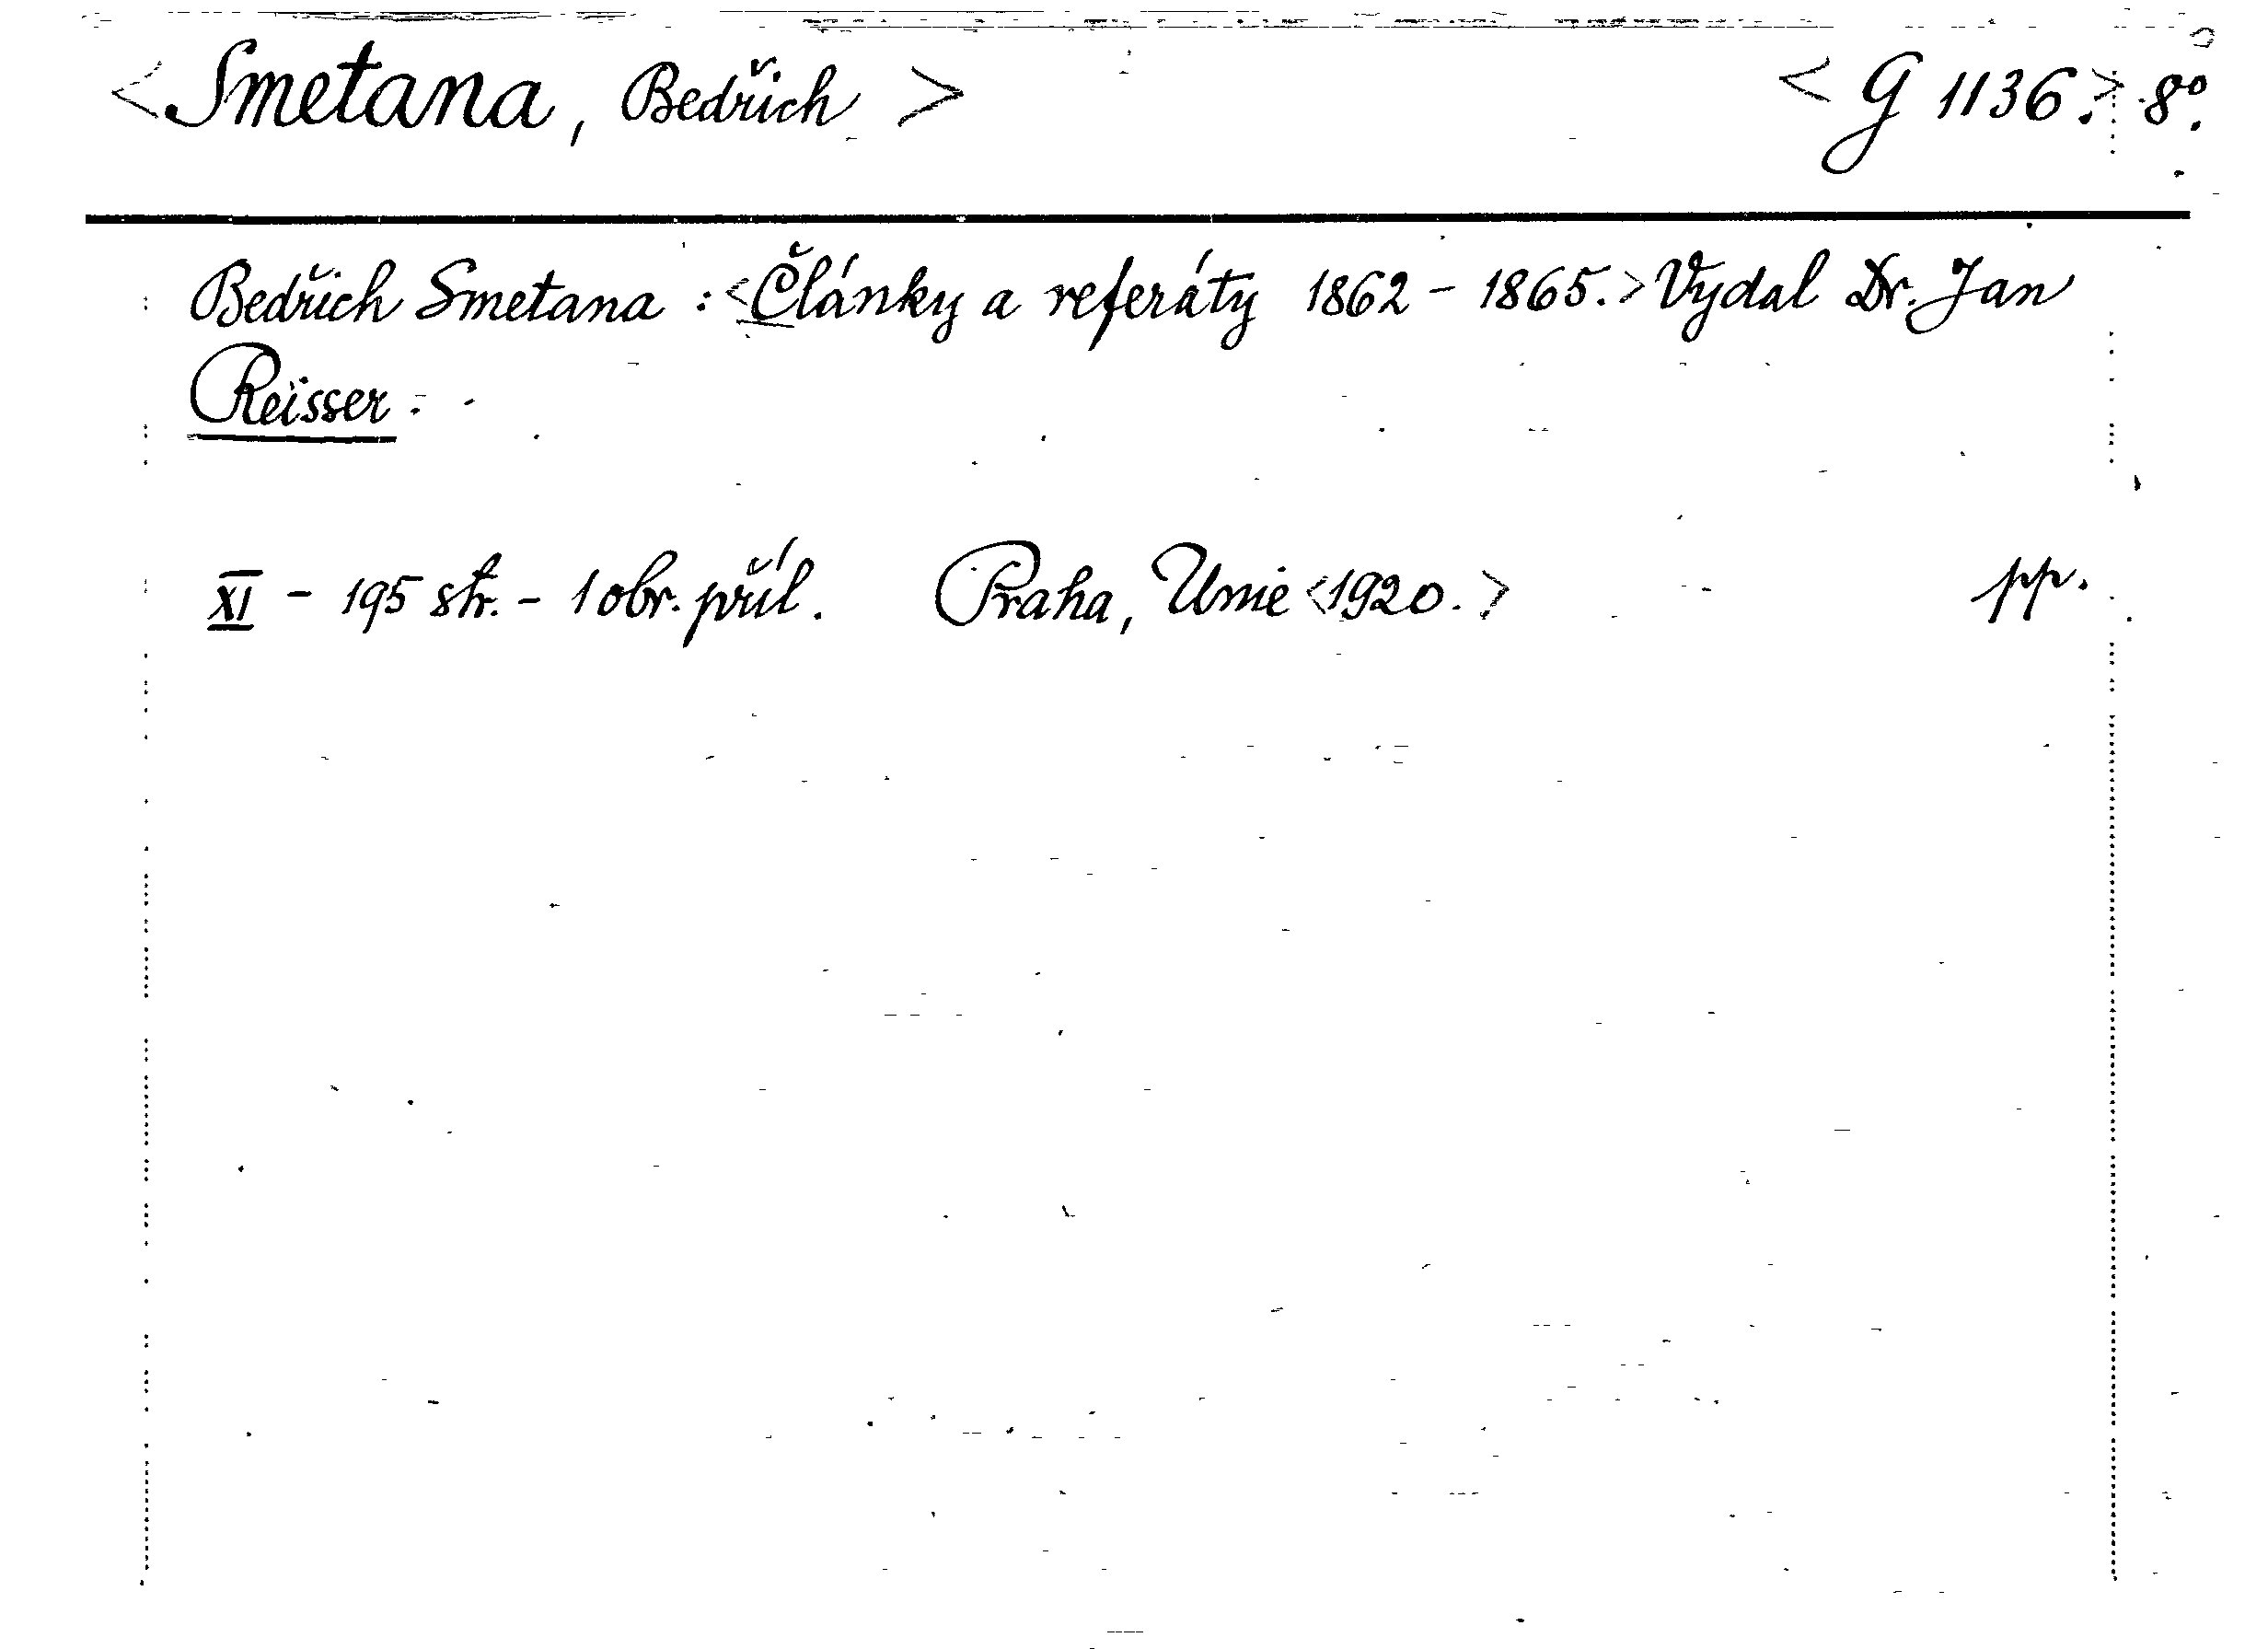 <Smetana, Bedřich> <G 1136.> 8°.
Bedřich Smetana: <Články a referáty 1862 - 1865.> Vydal Dr. Jan
Reisser.
XI - 195 str. - 1 obr. příl. Praha, Unie <1920.> pp.